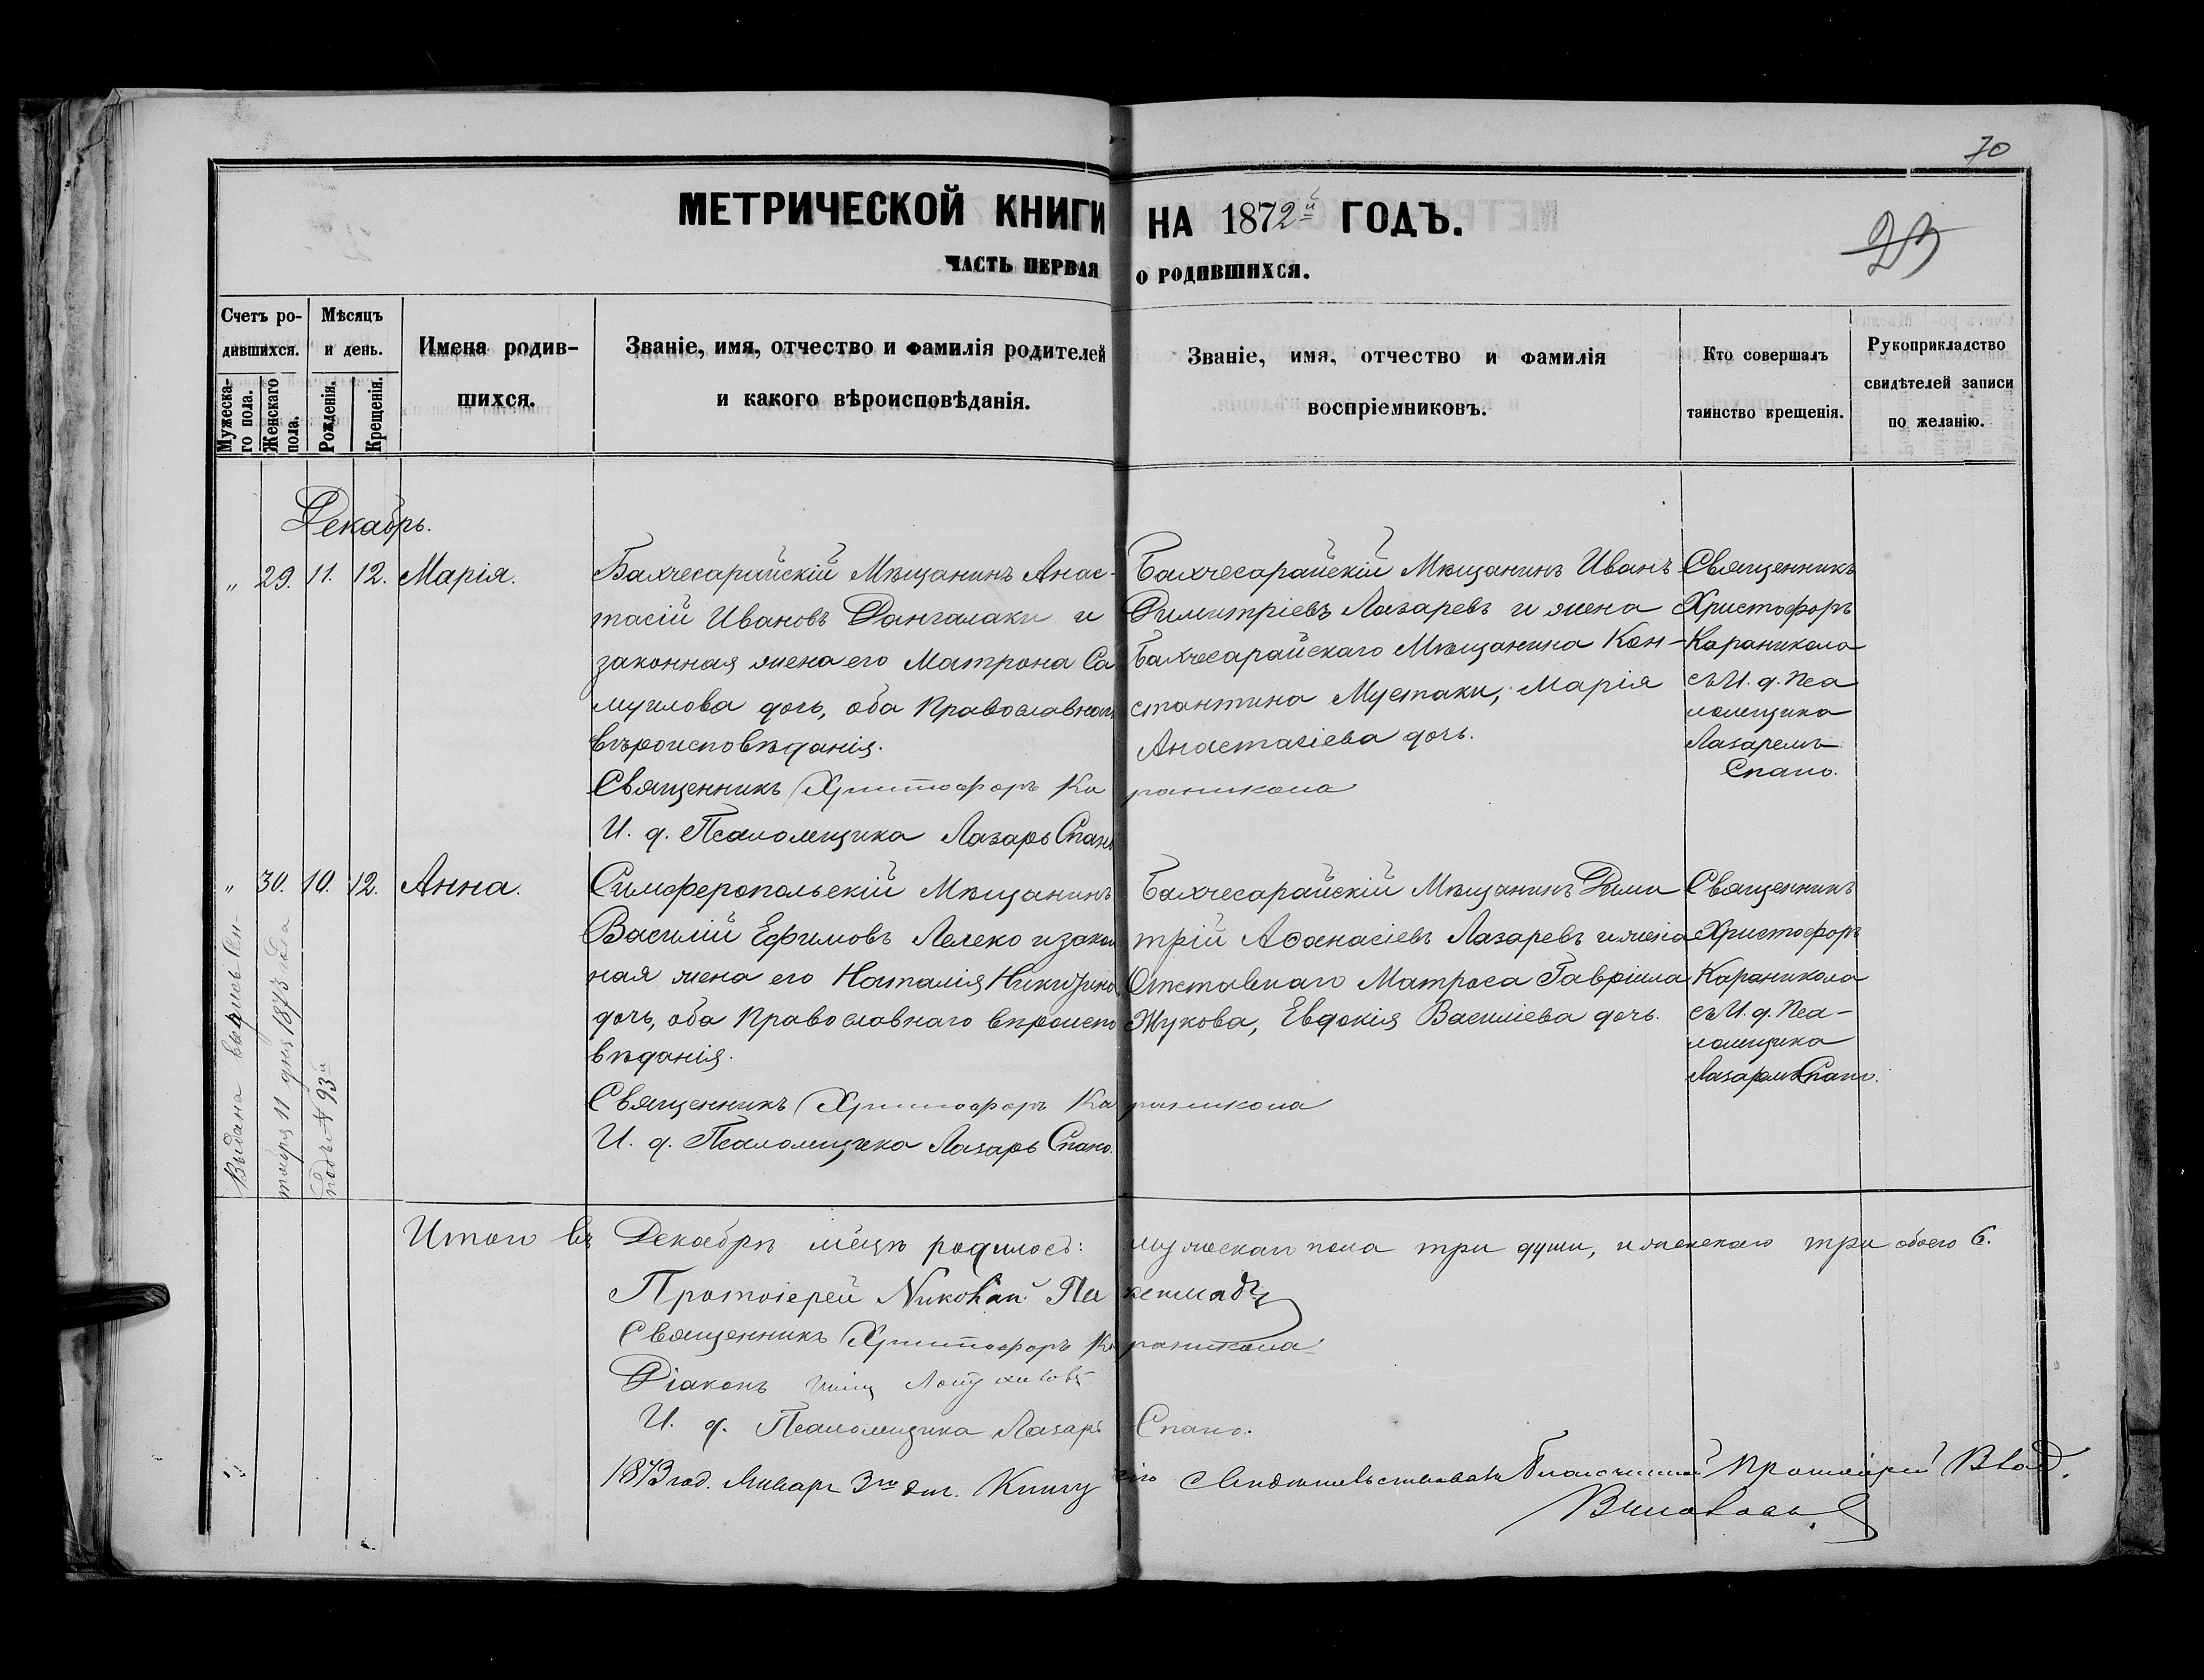 70
МЕТРИЧЕСКОЙ КНИГИ НА 1872й ГОДЪ.
23
ЧАСТЬ ПЕРВАЯ О РОДИВШИХСЯ.
Счетъ ро-
дившихся.
Мужеска-
го пола.
Женскаго
пола.
Мѣсяцъ
и день.
Рожденія.
Крещенія.
Имена родив-
шихся.
Званіе, имя, отчество и фамилія родителей
и какого вѣроисповѣданія.
Званіе, имя, отчество и фамилія
воспріемниковъ.
Кто совершалъ
таинство крещенія.
Рукоприкладство
свидѣтелей записи
по желанію.
Декабрь.
„ 29. 11. 12. Марія.
Бахчесарайскій Мѣщанинъ Анас-
тасій Ивановъ Дангалаки и
законная жена его Матрона Са
муилова дочь, оба Православнаго
вѣроисповѣданія.
Бахчесарайскій Мѣщанинъ Иванъ
Димитріевъ Лазаревъ и жена
Бахчесарайскаго Мѣщанина Кон-
стантина Мустаки, Марія
Анастасіева дочь.
Священникъ
Христофоръ
Караникола
съ И. д. Пса
ломщика
Лазаремъ
Спано.
Священникъ Христофоръ Караникола
И. д. Псаломщика Лазарь Спано
„ 30. 10. 12. Анна.
Симферопольскій Мѣщанинъ
Василій Ефимовъ Лелеко и закон
ная жена его Наталія Никитина
дочь, оба Православнаго вѣроиспо
вѣданія.
Бахчесарайскій Мѣщанинъ Дими
трій Аѳанасіевъ Лазаревъ и жена
Отставнаго Матроса Гавріила
Жукова, Евдокія Василіева дочь.
Священникъ
Христофоръ
Караникола
съ И. д. Пса-
ломщика
Лазаремъ Спано.
Священникъ Христофоръ Караникола
И. д. Псаломщика Лазарь Спано.
Выдана выпись Сен-
тября 11 дня 1873 года
подъ № 93й
Итого въ Декабрѣ мѣцѣ родилось: мужескаго пола три души, и женскаго три обоего 6.
Протоіерей Николай
Священникъ Христофоръ Караникола
Діаконъ
И. д. Псаломщика Лазарь Спано.
1873 год. Январ 3го дня. Книгу сію свидѣтельствовалъ Благочинный Протоіерей Влад.